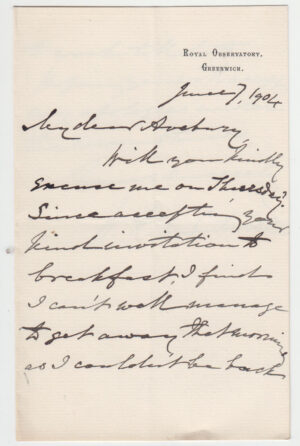 ROYAL OBSERVATORY,
GREENWICH.
June 7, 1904
My dear Avebury,
Will you kindly
excuse me on Thursday.
Since accepting your
kind invitation to
breakfast, I find
I can't well manage
to get away that morning
as I couldn't be back